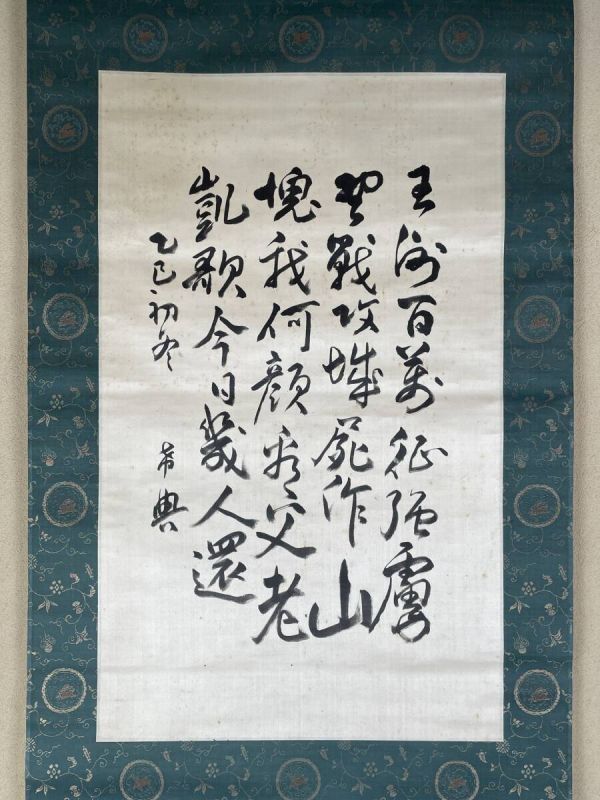 王師百萬征強虜
野戰攻城屍作山
愧我何顔看父老
凱歌今日幾人還
乙巳初冬 希典